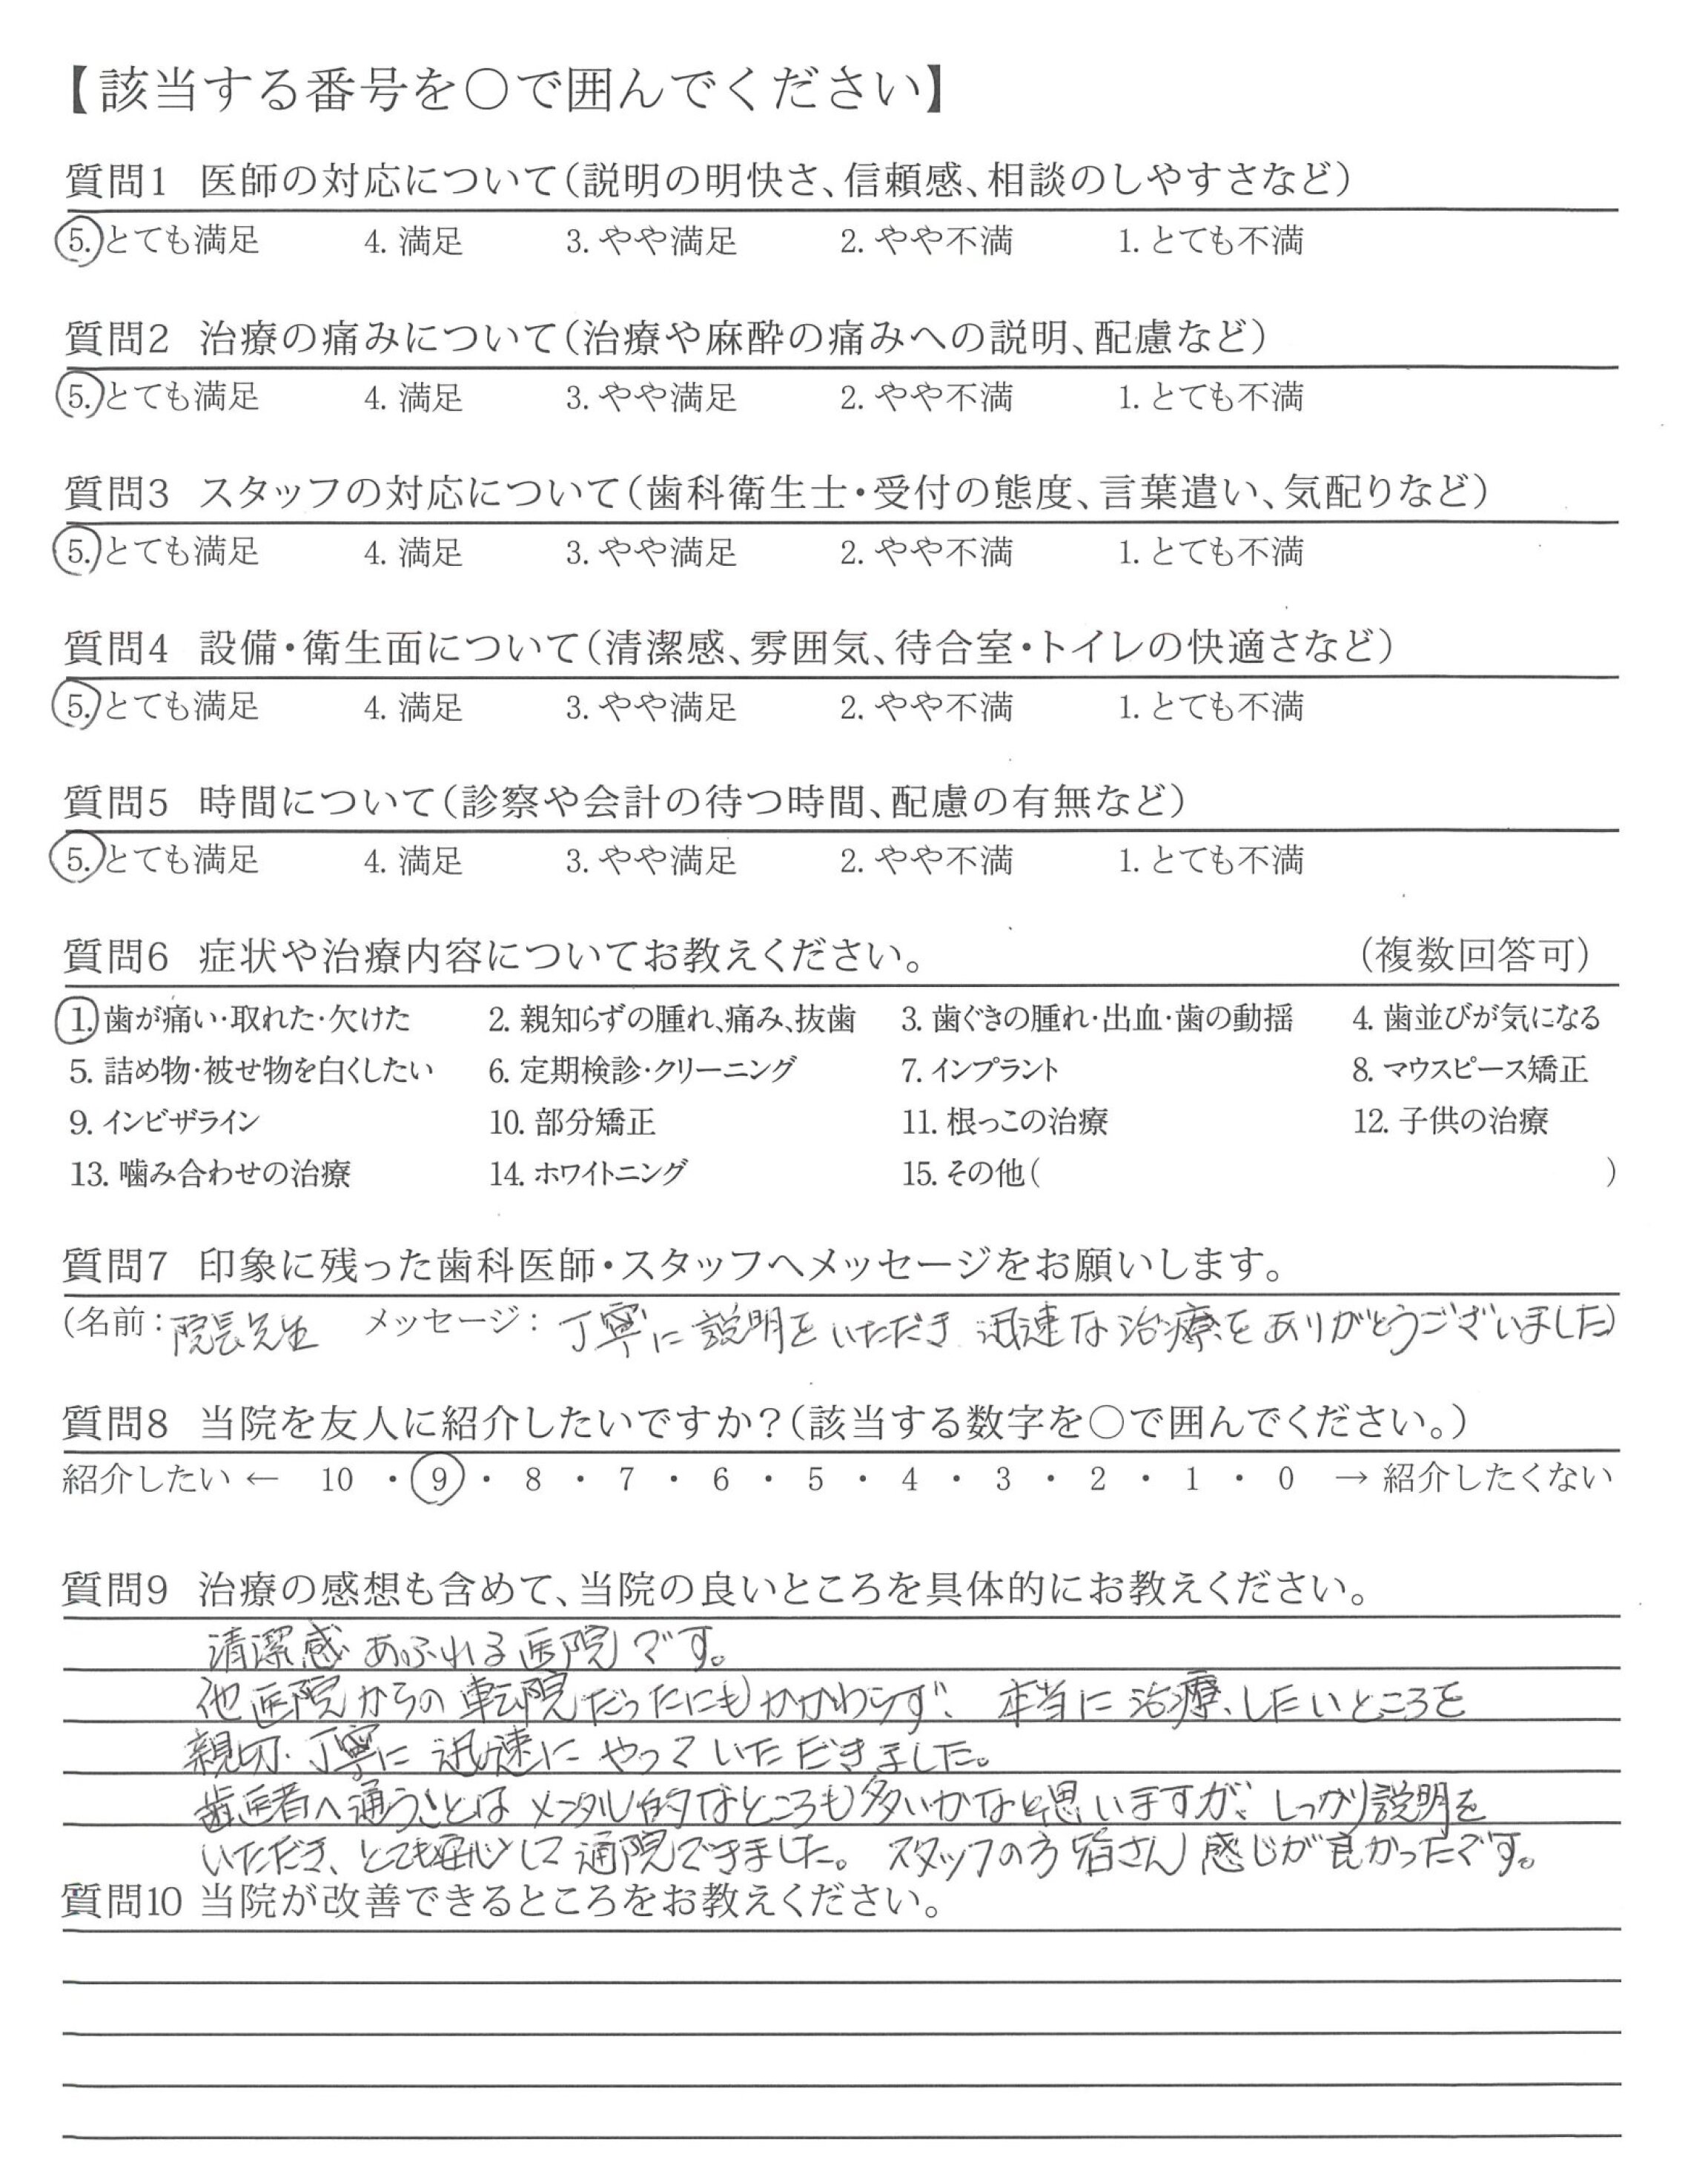 【該当する番号を〇で囲んでください】
質問1 医師の対応について(説明の明快さ、信頼感、相談のしやすさなど)
5. とても満足 4. 満足 3. やや満足 2. やや不満 1. とても不満
質問2 治療の痛みについて(治療や麻酔の痛みへの説明、配慮など)
5. とても満足 4. 満足 3. やや満足 2. やや不満 1. とても不満
質問3 スタッフの対応について(歯科衛生士・受付の態度、言葉遣い、気配りなど)
5. とても満足 4. 満足 3. やや満足 2. やや不満 1. とても不満
質問4 設備・衛生面について(清潔感、雰囲気、待合室・トイレの快適さなど)
5. とても満足 4. 満足 3. やや満足 2. やや不満 1. とても不満
質問5 時間について(診察や会計の待つ時間、配慮の有無など)
5. とても満足 4. 満足 3. やや満足 2. やや不満 1. とても不満
質問6 症状や治療内容についてお教えください。 (複数回答可)
1. 歯が痛い・取れた・欠けた 2. 親知らずの腫れ、痛み、抜歯 3. 歯ぐきの腫れ・出血・歯の動揺 4. 歯並びが気になる
5. 詰め物・被せ物を白くしたい 6. 定期検診・クリーニング 7. インプラント 8. マウスピース矯正
9. インビザライン 10. 部分矯正 11. 根っこの治療 12. 子供の治療
13. 噛み合わせの治療 14. ホワイトニング 15. その他( )
質問7 印象に残った歯科医師・スタッフへメッセージをお願いします。
(名前:院長先生 メッセージ:丁寧に説明をいただき 迅速な治療をありがとうございました)
質問8 当院を友人に紹介したいですか?(該当する数字を〇で囲んでください。)
紹介したい ← 10 ・ 9 ・ 8 ・ 7 ・ 6 ・ 5 ・ 4 ・ 3 ・ 2 ・ 1 ・ 0 → 紹介したくない
質問9 治療の感想も含めて、当院の良いところを具体的にお教えください。
清潔感あふれる医院です。
他医院からの転院だったにもかかわらず、本当に治療したいところを
親切・丁寧に迅速にやっていただきました。
歯医者へ通うことはメンタル的なところも多いかなと思いますが、しっかり説明を
いただき、とても安心して通院できました。スタッフの方皆さん感じが良かったです。
質問10 当院が改善できるところをお教えください。